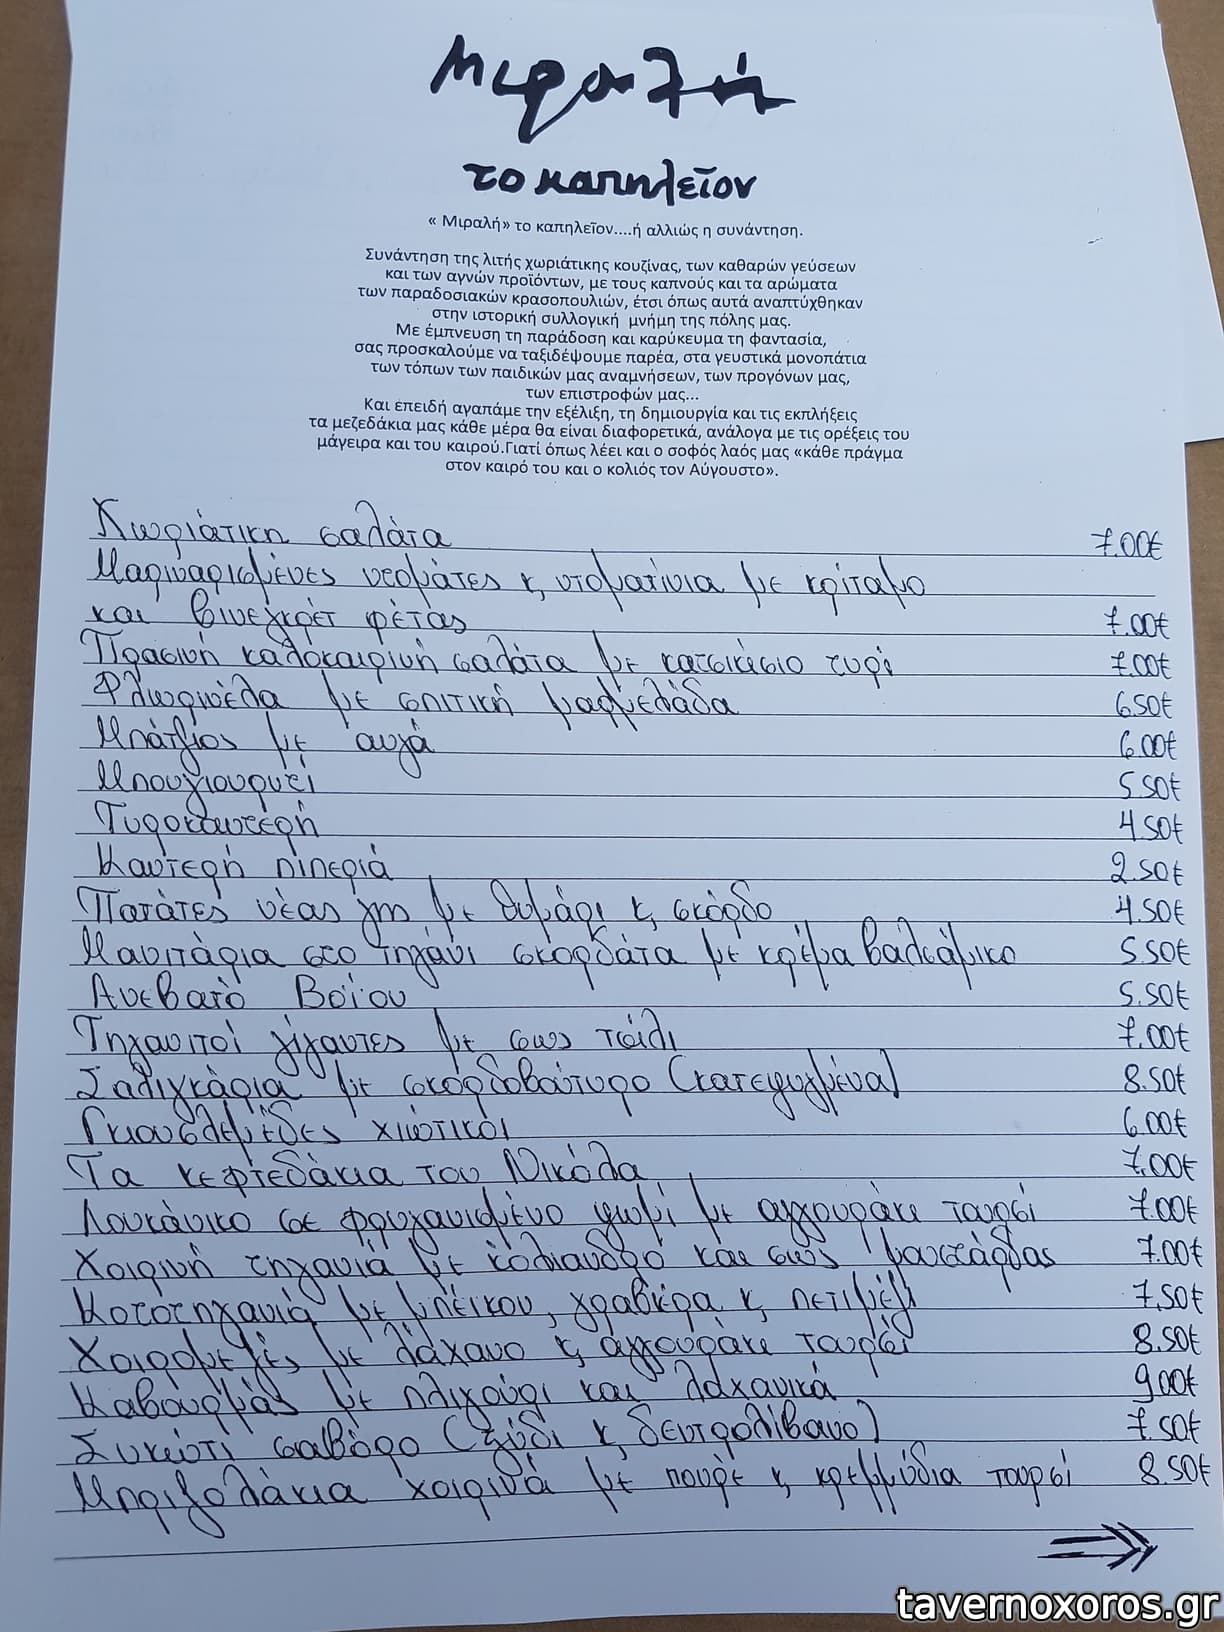 Μιραλή
το καπηλεῖον
« Μιραλή» το καπηλεῖον....ή αλλιώς η συνάντηση.
Συνάντηση της λιτής χωριάτικης κουζίνας, των καθαρών γεύσεων
και των αγνών προϊόντων, με τους καπνούς και τα αρώματα
των παραδοσιακών κρασοπουλιών, έτσι όπως αυτά αναπτύχθηκαν
στην ιστορική συλλογική μνήμη της πόλης μας.
Με έμπνευση τη παράδοση και καρύκευμα τη φαντασία,
σας προσκαλούμε να ταξιδέψουμε παρέα, στα γευστικά μονοπάτια
των τόπων των παιδικών μας αναμνήσεων, των προγόνων μας,
των επιστροφών μας...
Και επειδή αγαπάμε την εξέλιξη, τη δημιουργία και τις εκπλήξεις
τα μεζεδάκια μας κάθε μέρα θα είναι διαφορετικά, ανάλογα με τις ορέξεις του
μάγειρα και του καιρού.Γιατί όπως λέει και ο σοφός λαός μας «κάθε πράγμα
στον καιρό του και ο κολιός τον Αύγουστο».
Χωριάτικη σαλάτα 7.00€
Μαριναρισμένες ντομάτες κ, ντοματίνια με κρίταμο
και βινεγκρέτ φέτας 7.00€
Πράσινη καλοκαιρινή σαλάτα με κατσικίσιο τυρί 7.00€
Φλωρινέλα με σπιτική μαρμελάδα 6.50€
Μπάτζιος με αυγά 6.00€
Μπουγιουρντί 5.50€
Τυροκαυτερή 4.50€
Καυτερή πιπεριά 2.50€
Πατάτες νέας γης με θυμάρι κ, σκόρδο 4.50€
Μανιτάρια στο τηγάνι σκορδάτα με κρέμα βαλσάμικο 5.50€
Ανεβατό Βοΐου 5.50€
Τηγανιτοί γίγαντες με σως τσίλι 7.00€
Σαλιγκάρια με σκορδοβούτυρο (κατεψυγμένα) 8.50€
Γκιουσλεμέδες χιώτικοι 6.00€
Τα κεφτεδάκια του Νικόλα 7.00€
Λουκάνικο σε φρυγανισμένο ψωμί με αγγουράκι τουρσί 7.00€
Χοιρινή τηγανιά με κόλιανδρο και σως μουστάρδας 7.00€
Κοτοτηγανιά με μπέικον, γραβιέρα κ, πετιμέζι 7,50€
Χοιρομεζές με λάχανο κ, αγγουράκι τουρσί 8.50€
Καβουρμάς με πλιγούρι και λαχανικά 9.00€
Συκώτι σαβόρο (ξύδι κ, δεντρολίβανο) 7.50€
Μπριζολάκια χοιρινά με πουρέ κ, κρεμμύδια τουρσί 8.50€
tavernoxoros.gr